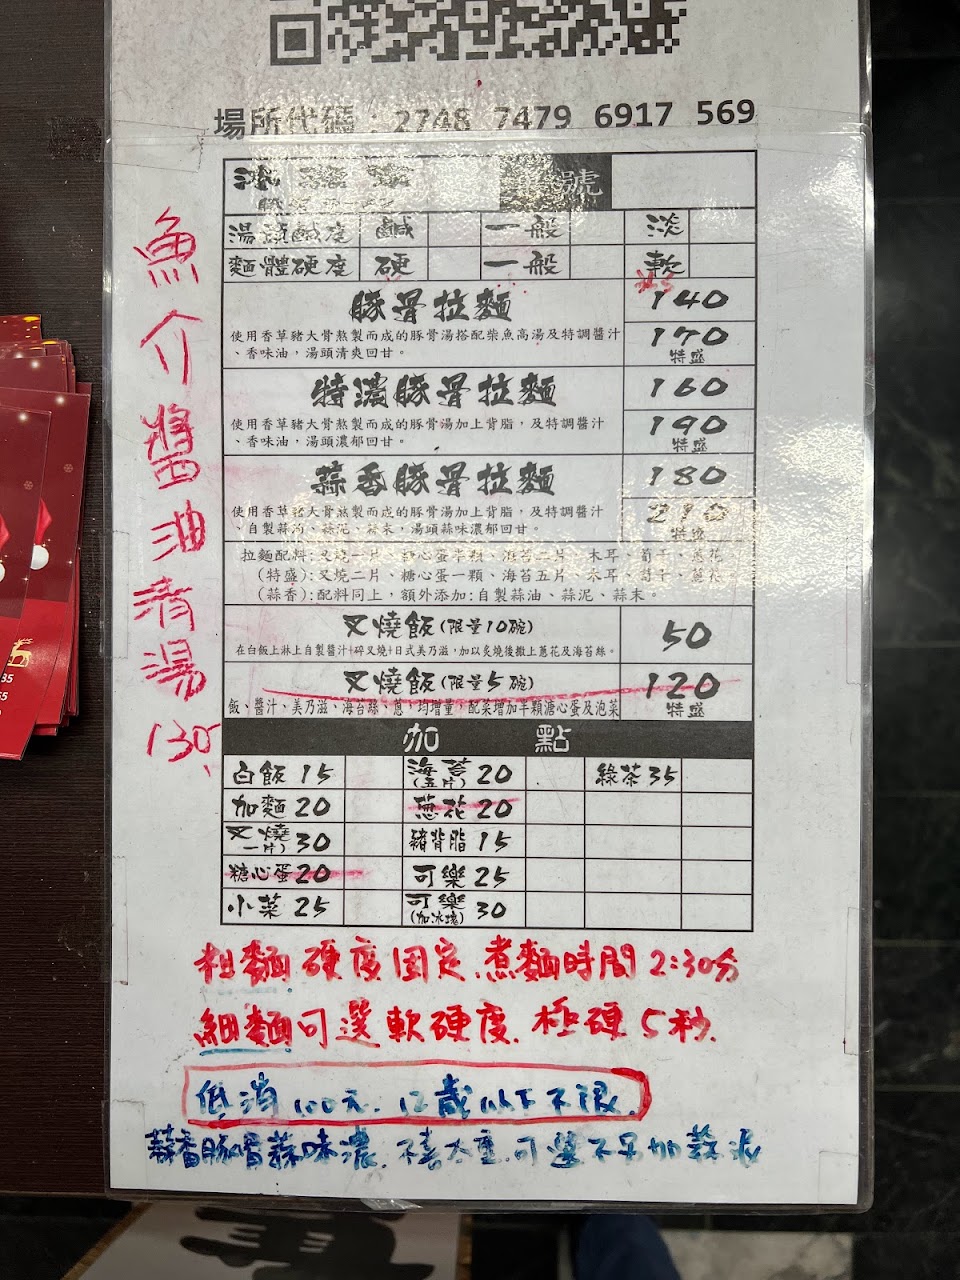 場所代碼：2748 7479 6917 569
號
湯頭鹹度 鹹 一般 淡
麵體硬度 硬 一般 軟
豚骨拉麵 140
使用香草豬大骨熬製而成的豚骨湯搭配柴魚高湯及特調醬汁
、香味油，湯頭清爽回甘。
170
特盛
特濃豚骨拉麵 160
使用香草豬大骨熬製而成的豚骨湯加上背脂，及特調醬汁
、香味油，湯頭濃郁回甘。
190
特盛
蒜香豚骨拉麵 180
使用香草豬大骨熬製而成的豚骨湯加上背脂，及特調醬汁
、自製蒜油、蒜泥、蒜末，湯頭蒜味濃郁回甘。
210
特盛
拉麵配料:叉燒一片、糖心蛋半顆、海苔二片、木耳、筍干、蔥花
(特盛):叉燒二片、糖心蛋一顆、海苔五片、木耳、筍干、蔥花
(蒜香):配料同上，額外添加:自製蒜油、蒜泥、蒜末。
叉燒飯(限量10碗) 50
在白飯上淋上自製醬汁+碎叉燒+日式美乃滋,加以炙燒後撒上蔥花及海苔絲。
叉燒飯(限量5碗) 120
飯、醬汁、美乃滋、海苔絲、蔥、均增量，配菜增加半顆溏心蛋及泡菜
特盛
加 點
白飯 15 海苔(五片) 20 綠茶 35
加麵 20 蔥花 20
叉燒(一片) 30 豬背脂 15
糖心蛋 20 可樂 25
小菜 25 可樂(加冰塊) 30
魚介醬油清湯 130
粗麵硬度固定.煮麵時間2:30分
細麵可選軟硬度.極硬5秒.
低消100元.12歲以下不限.
蒜香豚骨蒜味濃.不喜太重.可選不另加蒜泥